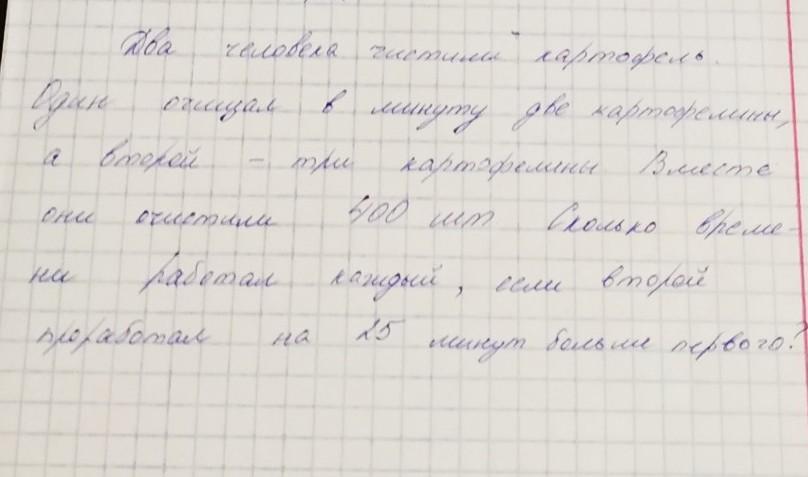 Два человека чистили картофель.
Один очищал в минуту две картофелины,
а второй - три картофелины Вместе
они очистили 400 шт Сколько време-
ни работал каждый, если второй
проработал на 25 минут больше первого?